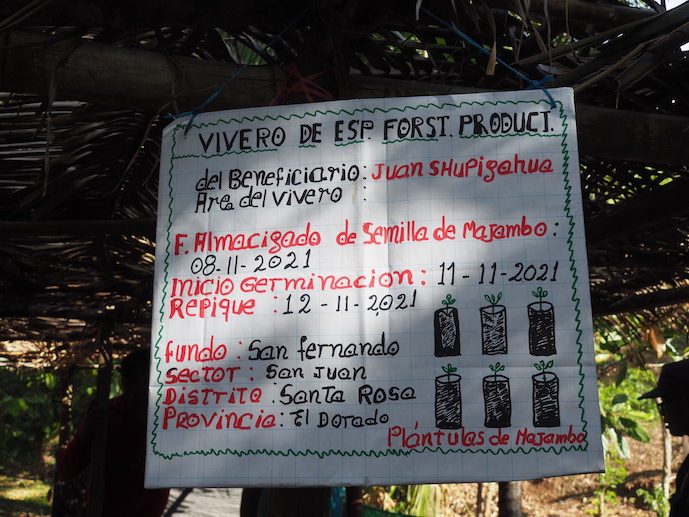 VIVERO DE ESP. FORST. PRODUCT.
del Beneficiario: Juan SHupigahua
Area del vivero :
F. Almacigado de Semilla de Majambo:
08-11-2021
Inicio Germinacion: 11-11-2021
Repique : 12-11-2021
Fundo : San fernando
Sector : San Juan
Distrito : Santa Rosa
Provincia: El Dorado
Plántulas de Majambo